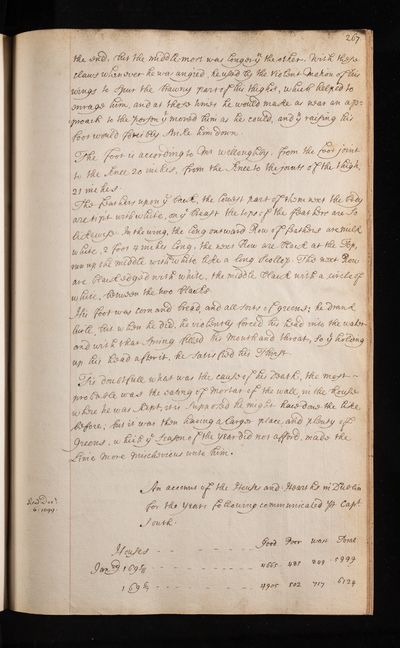 267
the end, but the middle most was longer yn the other. With these
claws whenever he was angred, he used by the violent motion of his
wings to spur the brawny part of his thighs, which helped to
enrage him, and at these times he would make as near an ap=
proach to the person yt moved him as he could, and yn raising his
foot would forcibly strike him down.
The foot is according to Mr Willoughby. from the foot joint
to the knee 20 inches, from the knee to the joints of the thigh
21 inches.
The feathers upon ye back, the lowest part of them next the body
are tipt with white, on ye breast the tops of the feathers are so
likewise. In the wing, the long outward Row of feathers are milk
white, 2 foot 4 inches long, the next Row are black at the top,
run up the middle with white like a long scollop. The next Row
are black edged with white, the middle black with a circle of
white, between the two blacks.
His food was corn and bread, and all sorts of greens; he drank
but when he did, he violently forced his head into the water
and with that spring filled his mouth and throat, so yn holding
up his head after it, he satisfied his Thirst.
Tis doubtfull what was the cause of his death, the most
probable was the eating of mortar of the wall, in the house
where he was kept, it is supposed he might have done the like
before; but it was then having a larger place, and plenty of
greens, which ye season of the year did not afford, made the
Lime more mischievous unto him.
An account of the Houses and Hearths in Dublin
for the years following communicated by Capt
South.
Read Decr
6: 1699.
Houses Good Poor wast Total
169
4905 502 717 6124